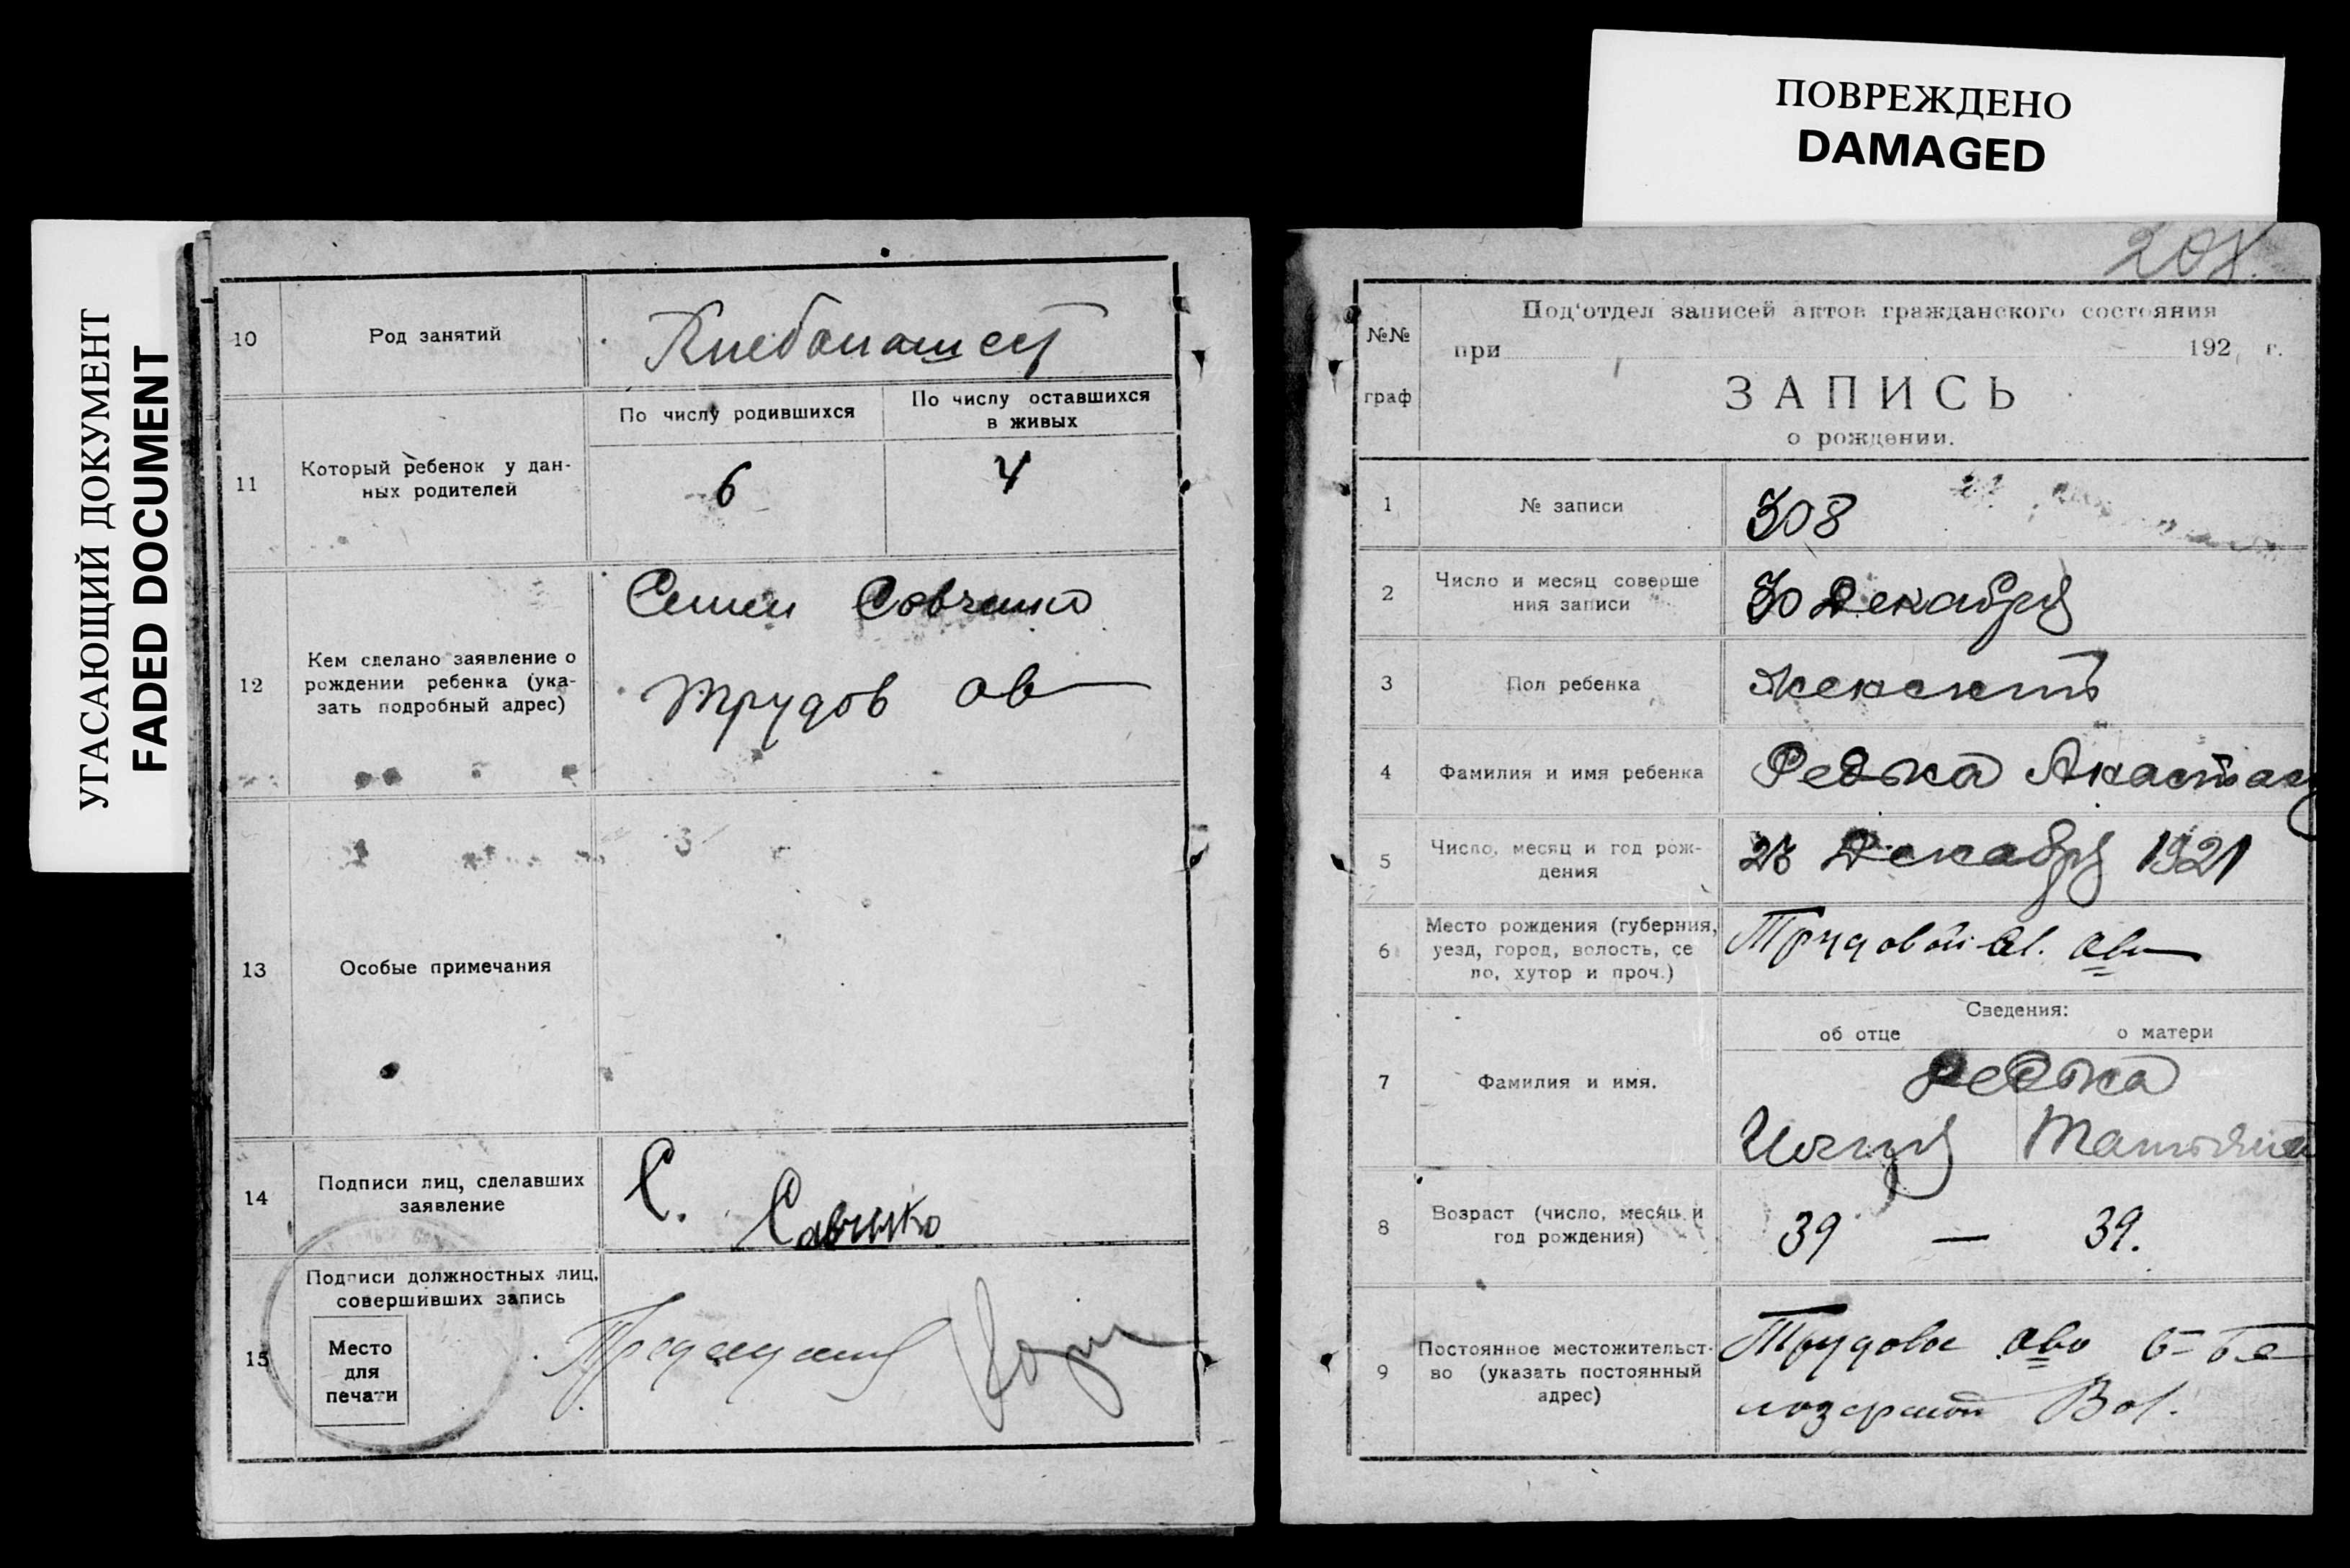 УГАСАЮЩИЙ ДОКУМЕНТ
FADED DOCUMENT
10
Род занятий
11
Который ребенок у дан-
ных родителей
По числу родившихся
По числу оставшихся
в живых
6
4
12
Кем сделано заявление о
рождении ребенка (ука-
зать подробный адрес)
Семен Совченко
Трудов ов
13
Особые примечания
14
Подписи лиц, сделавших
заявление
С. Савченко
15
Подписи должностных лиц,
совершивших запись
Место
для
печати
ПОВРЕЖДЕНО
DAMAGED
208.
№№
граф
Под'отдел записей актов гражданского состояния
при 192 г.
ЗАПИСЬ
о рождении.
1
№ записи
308
2
Число и месяц соверше
ния записи
30 Декабря
3
Пол ребенка
женский
4
Фамилия и имя ребенка
Редька Анастас
5
Число, месяц и год рож-
дения
Декабря 1921
6
Место рождения (губерния,
уезд, город, волость, се
ло, хутор и проч.)
Трудовой
7
Фамилия и имя.
Сведения:
об отце
о матери
Редька
Татьяна
8
Возраст (число, месяц и
год рождения)
39 — 39.
9
Постоянное местожительст-
во (указать постоянный
адрес)
Вол.